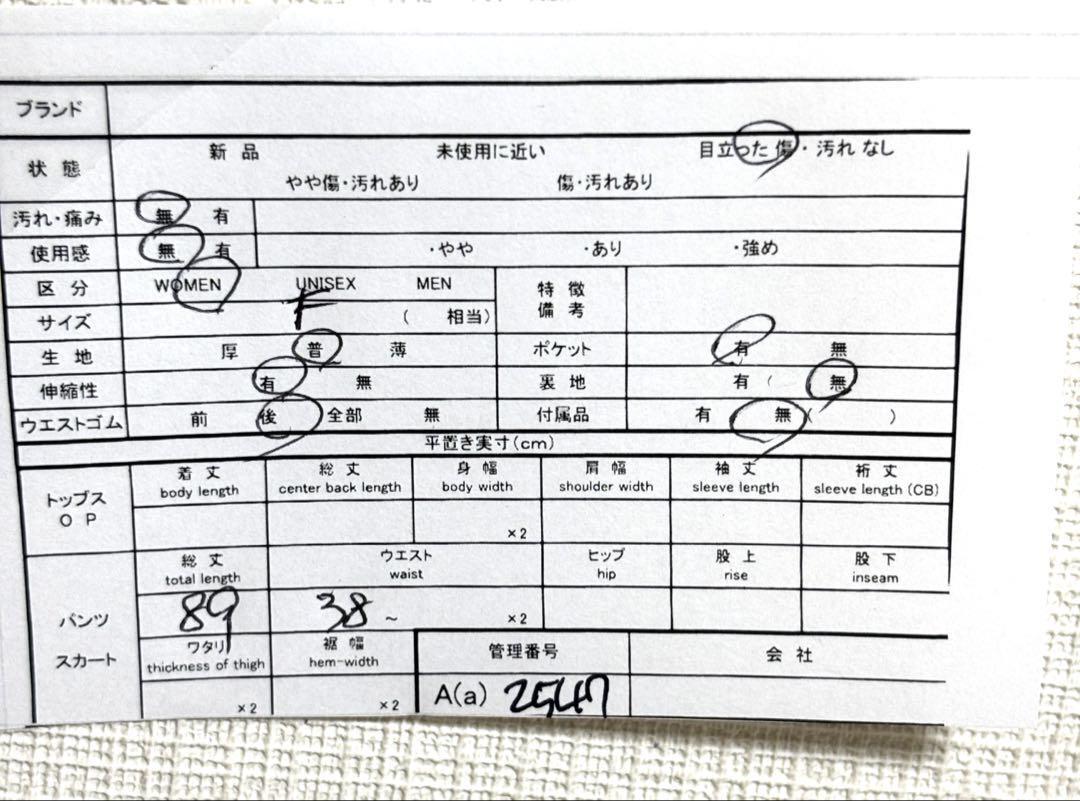 ブランド
状態 新品 未使用に近い 目立った傷・汚れなし
やや傷・汚れあり 傷・汚れあり
汚れ・痛み 無 有
使用感 無 有 ・やや ・あり ・強め
区分 WOMEN UNISEX MEN 特徴
備考
サイズ F ( 相当)
生地 厚 普 薄 ポケット 有 無
伸縮性 有 無 裏地 有( 無
ウエストゴム 前 後 全部 無 付属品 有 無( )
平置き実寸(cm)
トップス
OP
着丈 総丈 身幅 肩幅 袖丈 裄丈
body length center back length body width shoulder width sleeve length sleeve length (CB)
×2
パンツ
スカート
総丈 ウエスト ヒップ 股上 股下
total length waist hip rise inseam
89 38 ~ ×2
ワタリ 裾幅 管理番号 会社
thickness of thigh hem-width
×2 ×2 A(a) 2547